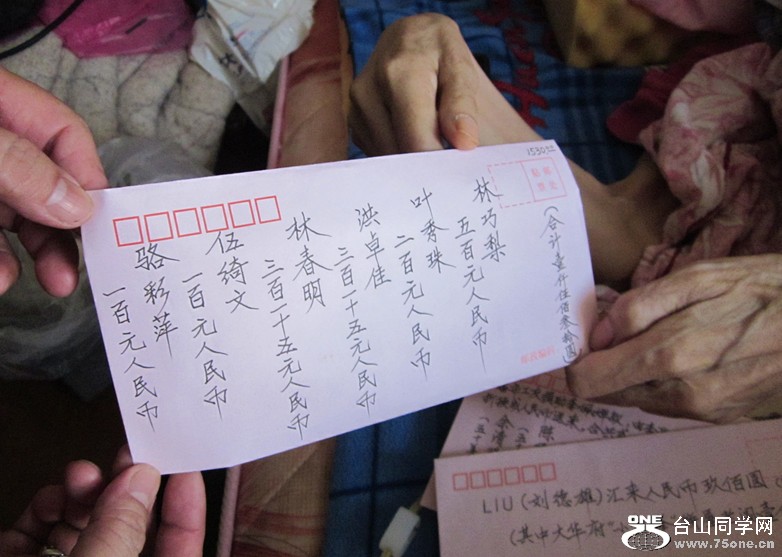 1530
贴邮
票处
(合计壹仟伍佰叁拾圆)
林巧梨
五百元人民币
叶秀珠
二百元人民币
洪卓佳
三百一十五元人民币
林春明
三百一十五元人民币
伍绮文
一百元人民币
骆彩萍
一百元人民币
邮政编码
LIU (刘德雄) 汇来人民币玖佰圆 (
(其中大华府
ONE 台山同学网
www.75one.cn